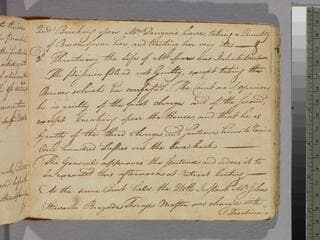 2nd Breaking open Mr Dargens house, taking a Quantity
of Bacon from him and treating him very ill
3d Threatening the life of Mr Spear and Inhabitant
The Prisoner plead not Guilty, except taking the
Bacon which he confess'd The Court are of opinion
he is guilty of the first charge and of the second,
except breaking open the House, and that he is
guilty of the third charge and sentence him to receive
One hundred Lashes on the bare back
The General approves the sentence and orders it to
be executed this afternoon at retreat beating
At the same Court held the 20th Instant Mr John
Steward Brigade Forage Master was charged with